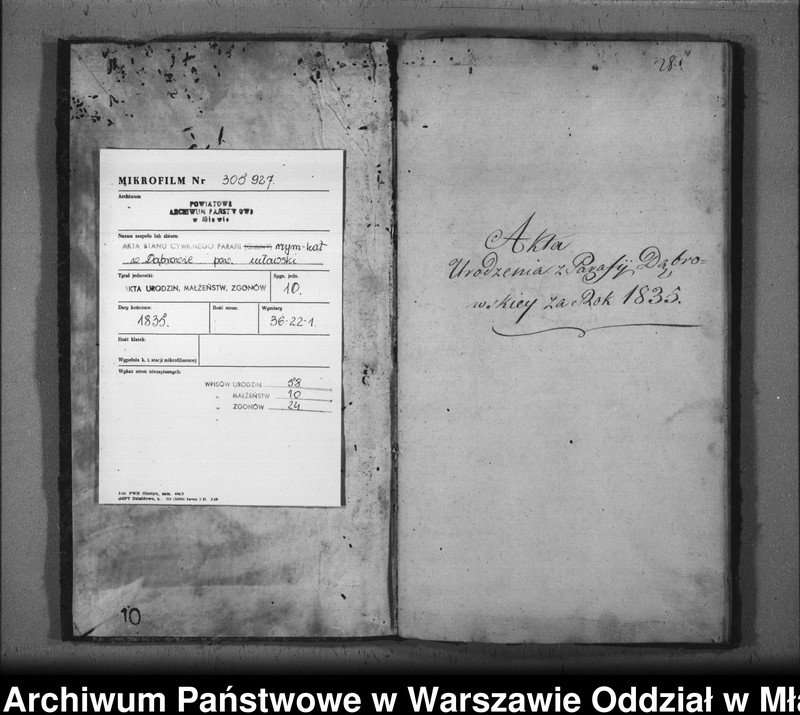 MIKROFILM Nr 300 927.
Archiwum
POWIATOWE
ARCHIWUM PAŃSTWOWE
w Mławie
Nazwa zespołu lub zbioru:
AKTA STANU CYWILNEGO PARAFII rzym-kat
w Dąbrowie pow. mławski
Tytuł jednostki: Sygn. jedn.
AKTA URODZIN, MAŁŻEŃSTW, ZGONÓW 10.
Daty końcowe: Ilość stron: Wymiary
1835. 36-22-1.
Ilość klatek:
Wypełnia k. t. stacji mikrofilmowej
Wykaz stron niezapisanych:
WPISÓW URODZIN 58
„ MAŁŻEŃSTW 10
„ ZGONÓW 24
10
28
Akta
Urodzenia z Parafij Dąbro=
wskiey za Rok 1835.
Archiwum Państwowe w Warszawie Oddział w Mła